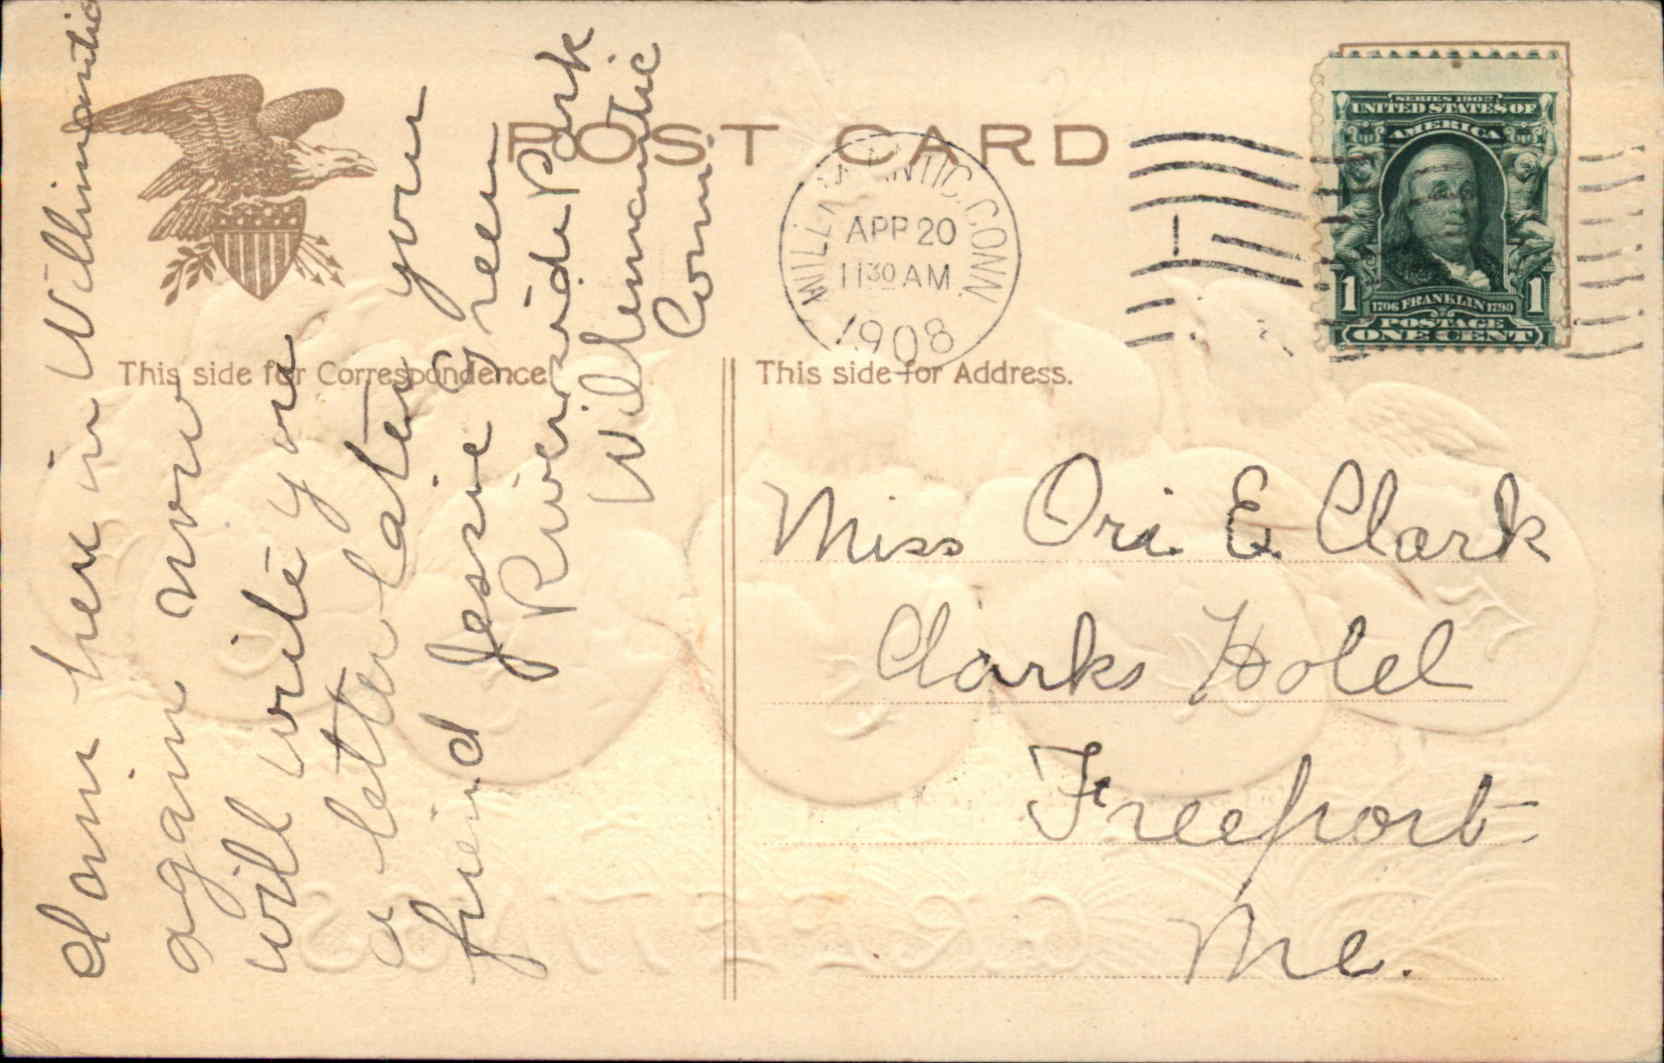 POST CARD
WILLIMANTIC, CONN.
APR 20
11 30 AM
1908
1
SERIES 1902
UNITED STATES OF
AMERICA
1
1706 FRANKLIN 1790
1
POSTAGE
ONE CENT
This side for Correspondence
This side for Address.
I am here in Willimantic
again now
will write you
a letter later your
friend Jessie Green
Riverside Park
Willemantic
Conn.
Miss Ori E Clark
Clarks Hotel
Freeport
Me.
GREETINGS